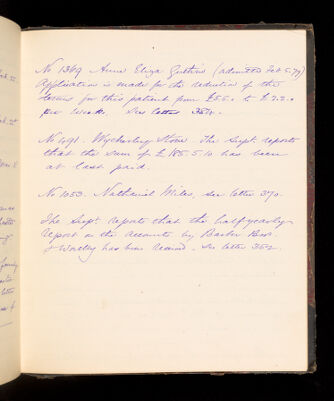 No 1369 Anna Eliza (admitted Feb 5. 79)
Application is made for the reduction of the
terms for this patient from £5.5.0 to £3.3.0
per week. See letter 354.
No 1091. Wycherley Stone. The Supt. reports
that the sum of £185.5.10 has been
at last paid.
No 1053. Nathaniel Miles, see letter 370.
The Supt. reports that the half yearly
report on the accounts by Barber Bros.
& Wortley has been received. See letter 352